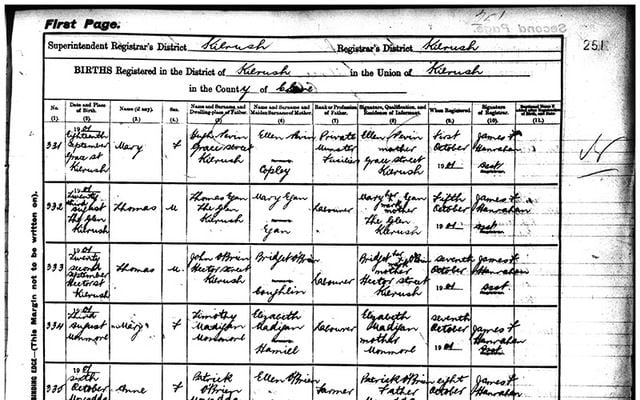 First Page.
251
Superintendent Registrar's District Kilrush Registrar's District Kilrush
BIRTHS Registered in the District of Kilrush in the Union of Kilrush
in the County of Clare
No. Date and Place of Birth Name (if any). Sex. Name and Surname and Dwelling-place of Father Name and Surname and Maiden Surname of Mother Rank or Profession of Father Signature, Qualification, and Residence of Informant. When Registered. Signature of Registrar.
(1.) (2.) (3.) (4.) (5.) (6.) (7.) (8.) (9.) (10.) (11.)
331 1901 Eighteenth September Grace St Kilrush Mary F Hugh Grace street Kilrush Ellen Copley Private Munster Fusiliers Ellen mother Grace street Kilrush First October 1901 James F Hanrahan
332 1901 Twenty third August The Glen Kilrush Thomas M Thomas Egan The Glen Kilrush Mary Egan Egan Labourer Mary her mark Egan mother The Glen Kilrush Fifth October 1901 James F Hanrahan
333 1901 Twenty second September Hector St Kilrush Thomas M John O'Brien Hector street Kilrush Bridget O'Brien Coughlin Labourer Bridget her mark O'Brien mother Hector street Kilrush seventh October 1901 James F Hanrahan
334 1901 Third August Monmore Mary F Timothy Madigan Monmore Elizabeth Madigan Hamill Labourer Elizabeth Madigan mother Monmore seventh October 1901 James F Hanrahan
335 1901 sixth October Anne F Patrick O'Brien Ellen O'Brien Farmer Patrick O'Brien Father eight October James F Hanrahan
BINDING EDGE—(This Margin not to be written on).